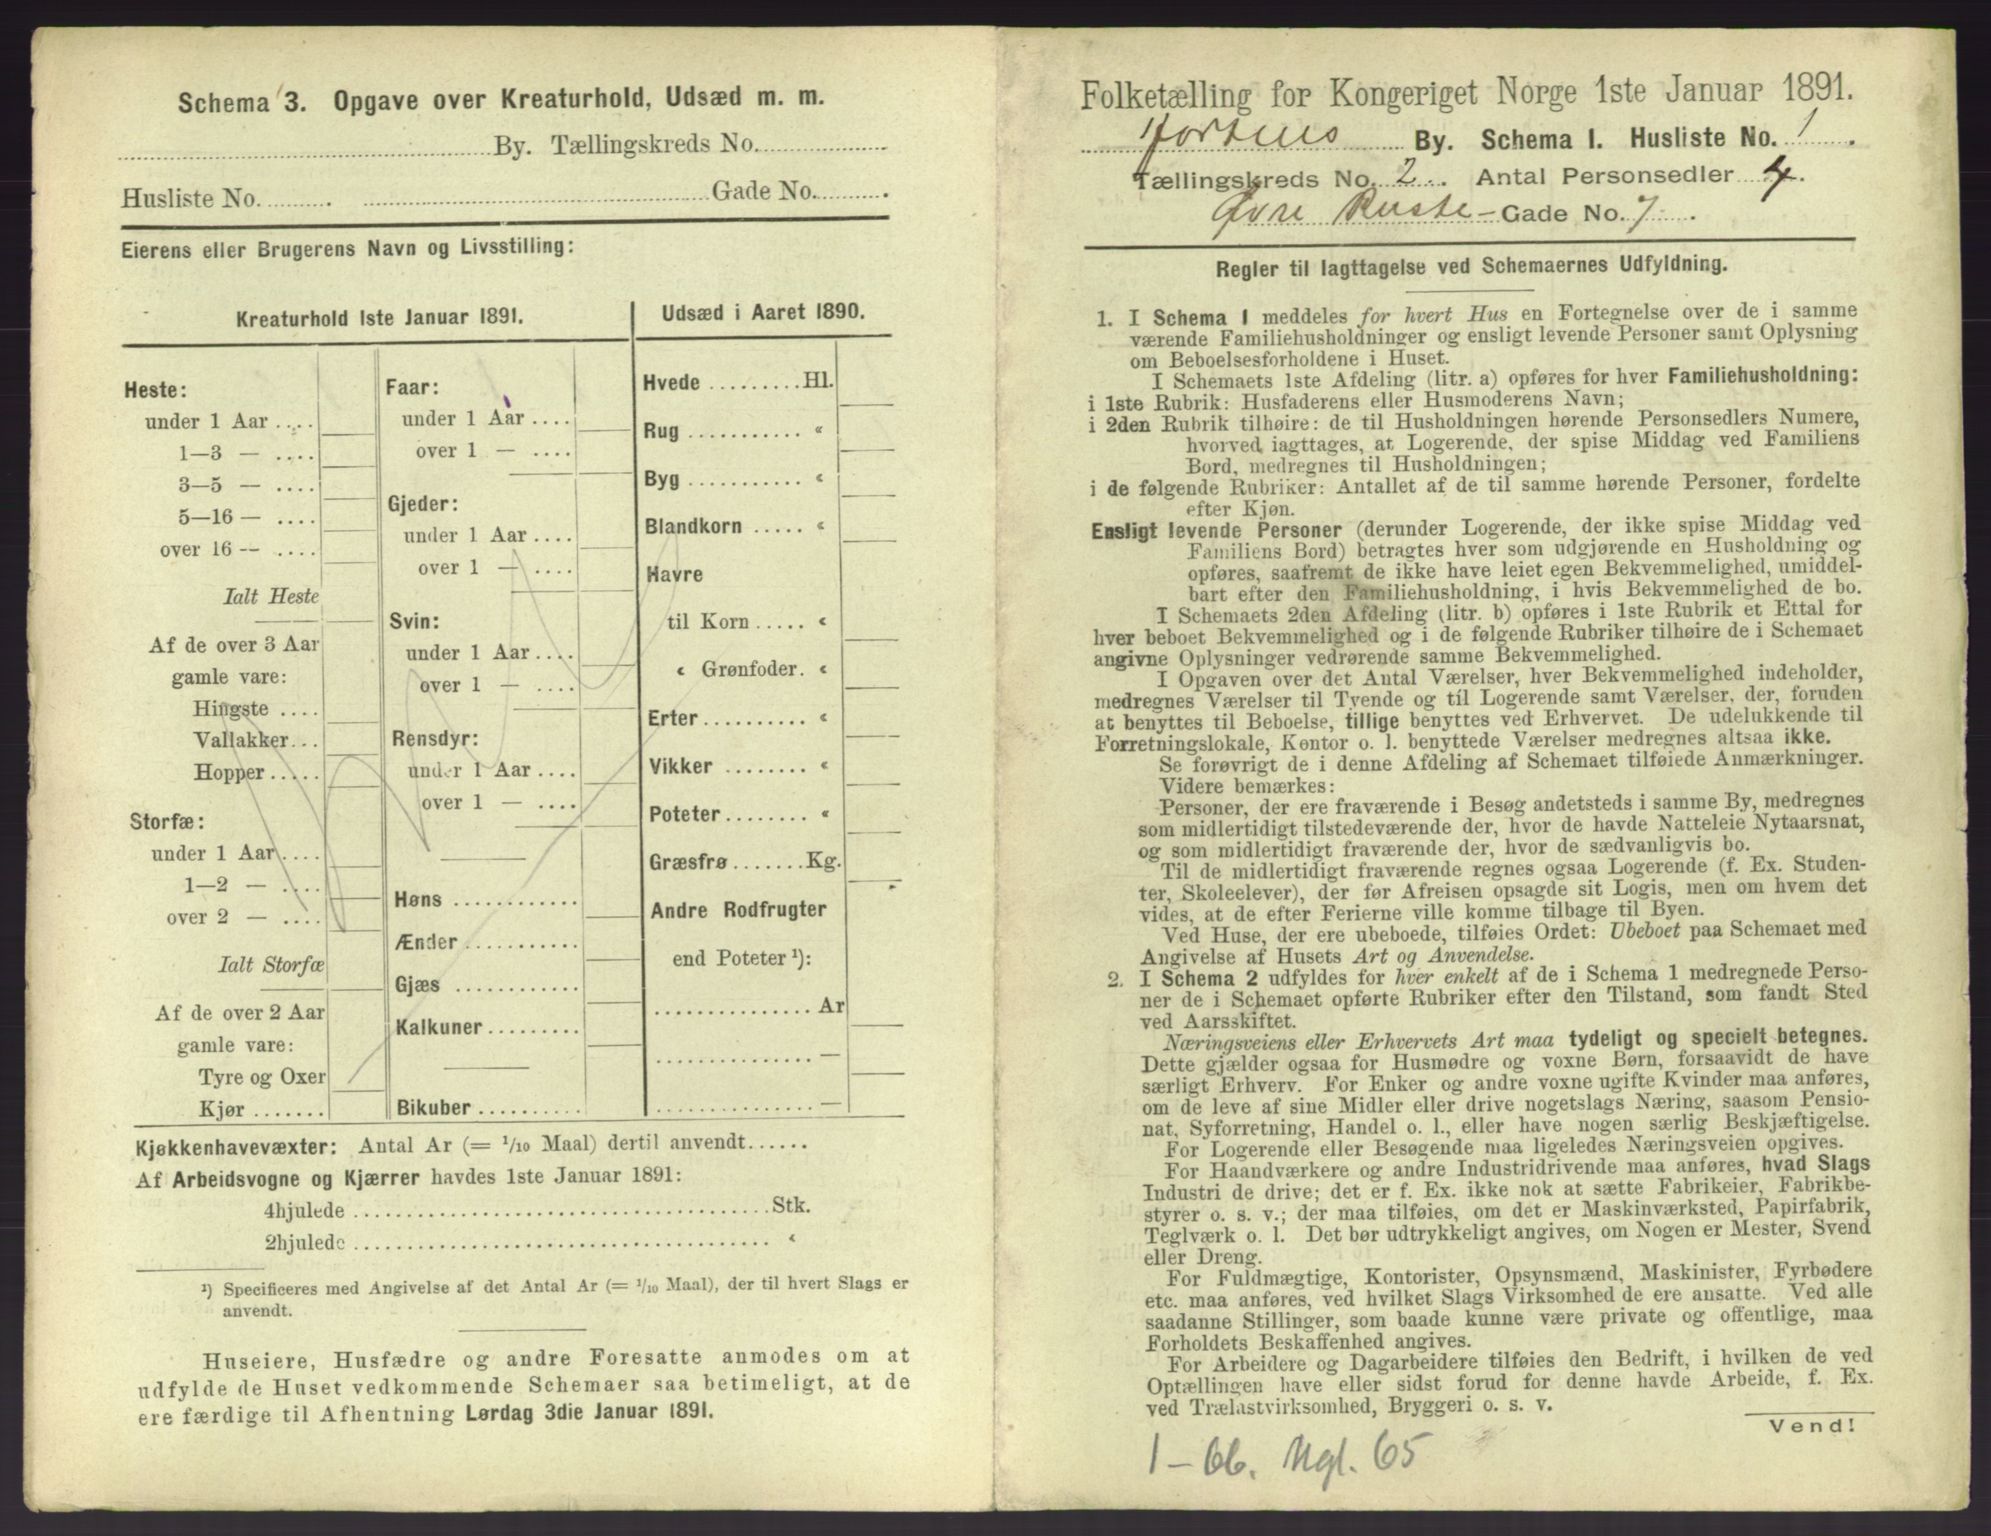 Schema 3. Opgave over Kreaturhold, Udsæd m. m.
By. Tællingskreds No.
Husliste No. Gade No.
Eierens eller Brugerens Navn og Livsstilling:
Kreaturhold 1ste Januar 1891.
Heste:
under 1 Aar ....
1—3 — ....
3—5 — ....
5—16 — ....
over 16 -- ....
Ialt Heste
Af de over 3 Aar
gamle vare:
Hingste ....
Vallakker...
Hopper.....
Storfæ:
under 1 Aar....
1—2 — ....
over 2 — ....
Ialt Storfæ
Af de over 2 Aar
gamle vare:
Tyre og Oxer
Kjør .......
Faar:
under 1 Aar ....
over 1 — ....
Gjeder:
under 1 Aar ....
over 1 — ....
Svin:
under 1 Aar ....
over 1 — ....
Rensdyr:
under 1 Aar ....
over 1 — ....
Høns ............
Ænder ...........
Gjæs ............
Kalkuner.........
Bikuber ..........
Udsæd i Aaret 1890.
Hvede .........Hl.
Rug ........... «
Byg ........... «
Blandkorn ..... «
Havre
til Korn ..... «
« Grønfoder. «
Erter.......... «
Vikker ........ «
Poteter........ «
Græsfrø .......Kg.
Andre Rodfrugter
end Poteter ¹):
............... Ar
............... —
............... —
Kjøkkenhavevæxter: Antal Ar (= 1/10 Maal) dertil anvendt......
Af Arbeidsvogne og Kjærrer havdes 1ste Januar 1891:
4hjulede ....................................... Stk.
2hjulede ....................................... «
¹) Specificeres med Angivelse af det Antal Ar (= 1/10 Maal), der til hvert Slags er
anvendt.
Huseiere, Husfædre og andre Foresatte anmodes om at
udfylde de Huset vedkommende Schemaer saa betimeligt, at de
ere færdige til Afhentning Lørdag 3die Januar 1891.
Folketælling for Kongeriget Norge 1ste Januar 1891.
Hortens By. Schema I. Husliste No. 1
Tællingskreds No. 2. Antal Personsedler 4.
Øvre Keiste- Gade No. 7
Regler til Iagttagelse ved Schemaernes Udfyldning.
1. I Schema 1 meddeles for hvert Hus en Fortegnelse over de i samme
værende Familiehusholdninger og ensligt levende Personer samt Oplysning
om Beboelsesforholdene i Huset.
I Schemaets 1ste Afdeling (litr. a) opføres for hver Familiehusholdning:
i 1ste Rubrik: Husfaderens eller Husmoderens Navn;
i 2den Rubrik tilhøire: de til Husholdningen hørende Personsedlers Numere,
hvorved iagttages, at Logerende, der spise Middag ved Familiens
Bord, medregnes til Husholdningen;
i de følgende Rubriker: Antallet af de til samme hørende Personer, fordelte
efter Kjøn.
Ensligt levende Personer (derunder Logerende, der ikke spise Middag ved
Familiens Bord) betragtes hver som udgjørende en Husholdning og
opføres, saafremt de ikke have leiet egen Bekvemmelighed, umiddel-
bart efter den Familiehusholdning, i hvis Bekvemmelighed de bo.
I Schemaets 2den Afdeling (litr. b) opføres i 1ste Rubrik et Ettal for
hver beboet Bekvemmelighed og i de følgende Rubriker tilhøire de i Schemaet
angivne Oplysninger vedrørende samme Bekvemmelighed.
I Opgaven over det Antal Værelser, hver Bekvemmelighed indeholder,
medregnes Værelser til Tyende og til Logerende samt Værelser, der, foruden
at benyttes til Beboelse, tillige benyttes ved Erhvervet. De udelukkende til
Forretningslokale, Kontor o. l. benyttede Værelser medregnes altsaa ikke.
Se forøvrigt de i denne Afdeling af Schemaet tilføiede Anmærkninger.
Videre bemærkes:
Personer, der ere fraværende i Besøg andetsteds i samme By, medregnes
som midlertidigt tilstedeværende der, hvor de havde Natteleie Nytaarsnat,
og som midlertidigt fraværende der, hvor de sædvanligvis bo.
Til de midlertidigt fraværende regnes ogsaa Logerende (f. Ex. Studen-
ter, Skoleelever), der før Afreisen opsagde sit Logis, men om hvem det
vides, at de efter Ferierne ville komme tilbage til Byen.
Ved Huse, der ere ubeboede, tilføies Ordet: Ubeboet paa Schemaet med
Angivelse af Husets Art og Anvendelse.
2. I Schema 2 udfyldes for hver enkelt af de i Schema 1 medregnede Perso-
ner de i Schemaet opførte Rubriker efter den Tilstand, som fandt Sted
ved Aarsskiftet.
Næringsveiens eller Erhvervets Art maa tydeligt og specielt betegnes.
Dette gjælder ogsaa for Husmødre og voxne Børn, forsaavidt de have
særligt Erhverv. For Enker og andre voxne ugifte Kvinder maa anføres,
om de leve af sine Midler eller drive nogetslags Næring, saasom Pensio-
nat, Syforretning, Handel o. l., eller have nogen særlig Beskjæftigelse.
For Logerende eller Besøgende maa ligeledes Næringsveien opgives.
For Haandværkere og andre Industridrivende maa anføres, hvad Slags
Industri de drive; det er f. Ex. ikke nok at sætte Fabrikeier, Fabrikbe-
styrer o. s. v.; der maa tilføies, om det er Maskinværksted, Papirfabrik,
Teglværk o. l. Det bør udtrykkeligt angives, om Nogen er Mester, Svend
eller Dreng.
For Fuldmægtige, Kontorister, Opsynsmænd, Maskinister, Fyrbødere
etc. maa anføres, ved hvilket Slags Virksomhed de ere ansatte. Ved alle
saadanne Stillinger, som baade kunne være private og offentlige, maa
Forholdets Beskaffenhed angives.
For Arbeidere og Dagarbeidere tilføies den Bedrift, i hvilken de ved
Optællingen have eller sidst forud for denne havde Arbeide, f. Ex.
ved Trælastvirksomhed, Bryggeri o. s. v.
Vend!
1-66. Mgl. 65